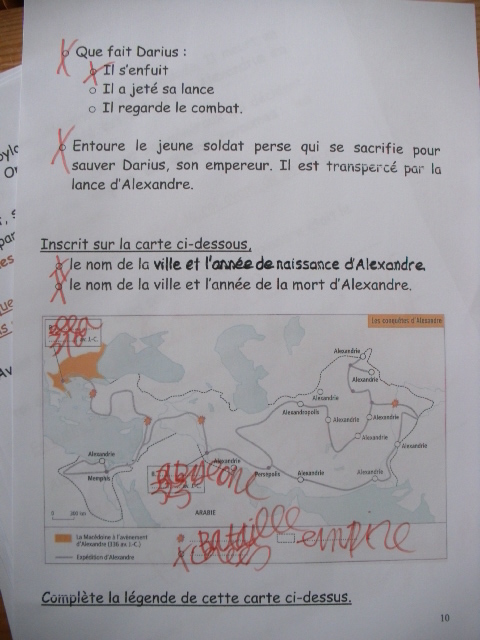 Que fait Darius :
Il s'enfuit
Il a jeté sa lance
Il regarde le combat.
Entoure le jeune soldat perse qui se sacrifie pour
sauver Darius, son empereur. Il est transpercé par la
lance d'Alexandre.
Inscrit sur la carte ci-dessous,
le nom de la ville et l'année de naissance d'Alexandre.
le nom de la ville et l'année de la mort d'Alexandre.
Les conquêtes d'Alexandre
J.-C.
Alexandrie
Alexandrie
Alexandrie
Alexandropolis
Alexandrie
Alexandrie
Alexandrie
Alexandrie
Alexandrie
Alexandrie
Persepolis
Alexandrie
Alexandrie
Memphis
ARABIE
La Macédoine à l'avènement
d'Alexandre (336 av. J.-C.)
Expédition d'Alexandre
Bataille
empire
Complète la légende de cette carte ci-dessus.
10